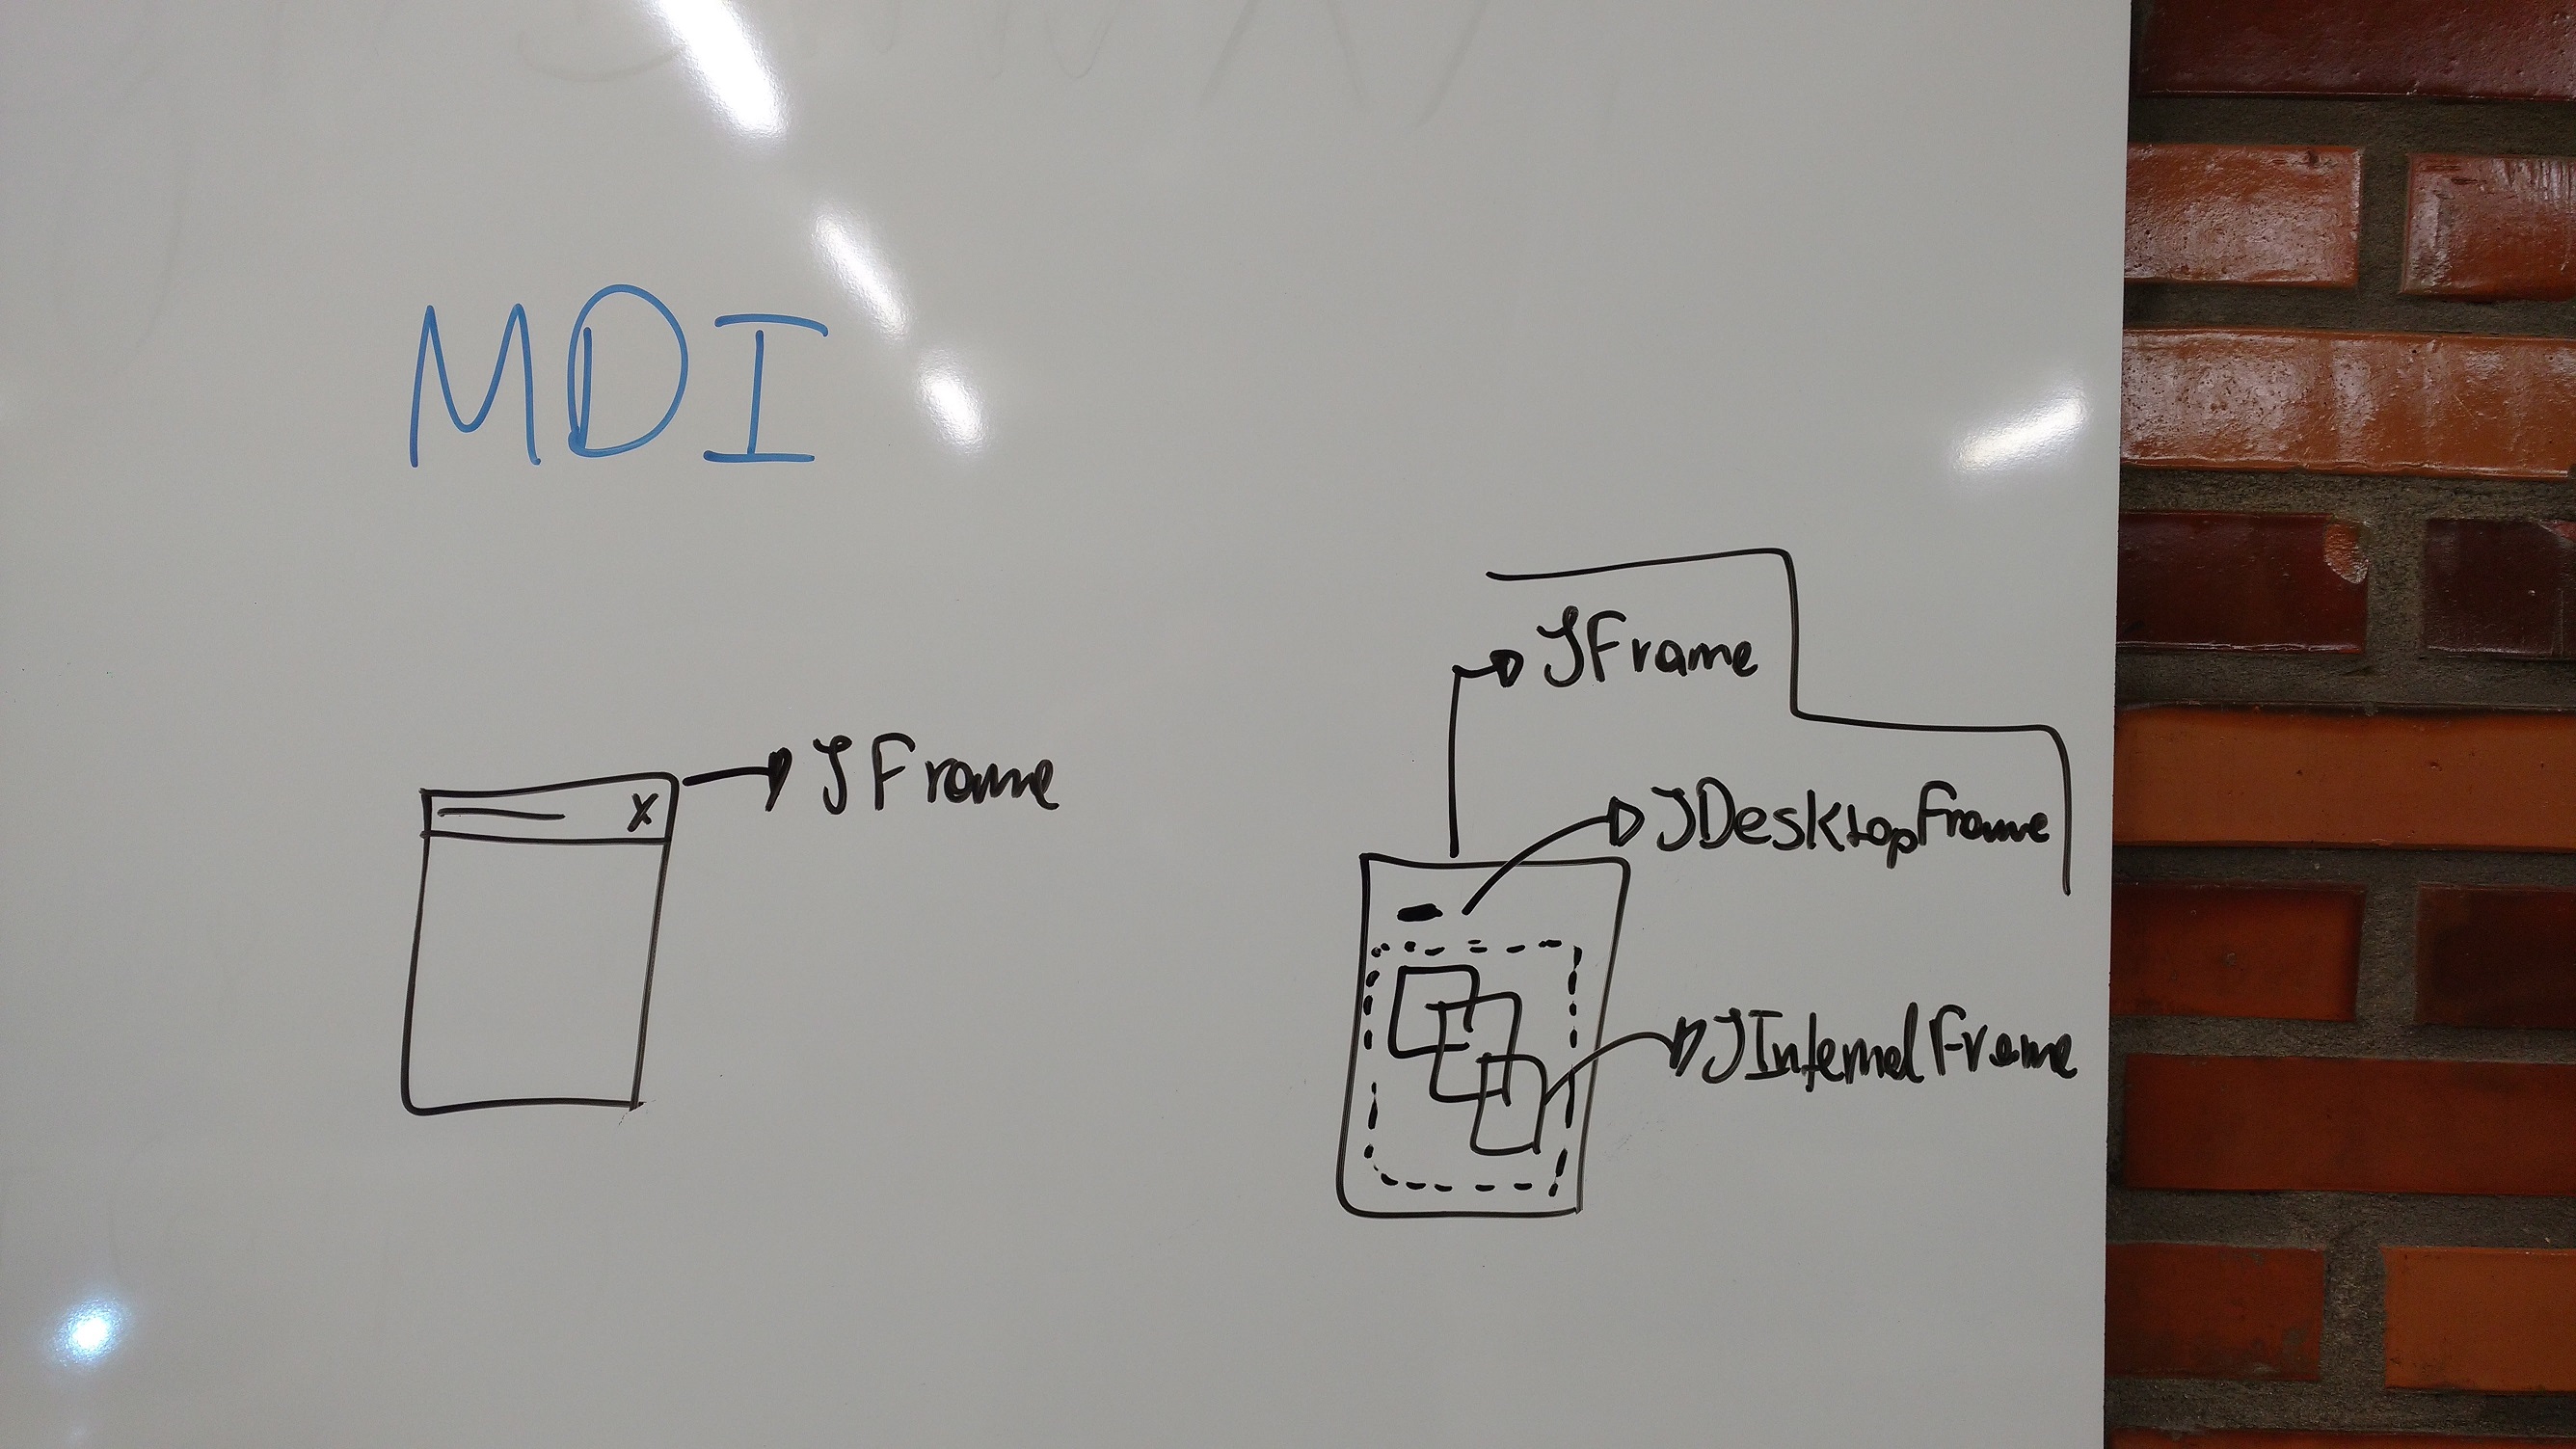 MDI
JFrame
JFrame
X
JDesktopFrame
JInternalFrame